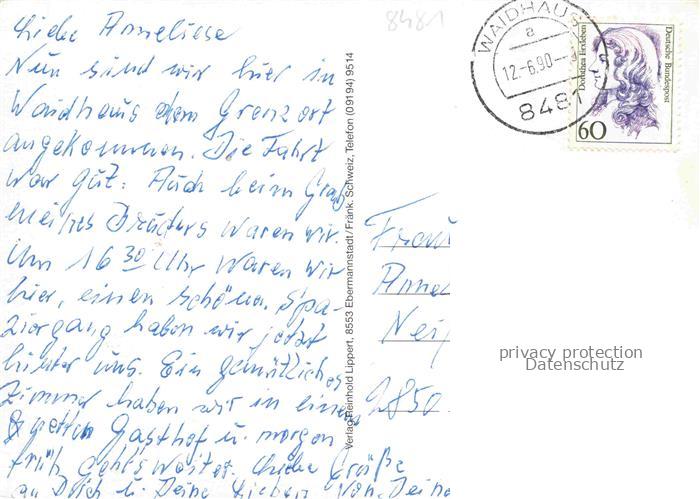 8481
Liebe Anneliese
Nun sind wir hier in
Waidhaus dem Grenzort
angekommen. Die Fahrt
war gut. Auch beim Grab
meines Bruders waren wir.
Um 16 30 Uhr waren wir
hier, einen schönen Spa-
ziergang haben wir jetzt
hinter uns. Ein gemütliches
Zimmer haben wir in einem
netten Gasthof u. morgen
früh geht's weiter. Liebe Grüße
an Dich u. Deine Lieben von Deine
Verlag Reinhold Lippert, 8553 Ebermannstadt/Fränk. Schweiz, Telefon (09194) 9514
WAIDHAUS
a
12.-6.90
8481
Dorothea Erxleben
Deutsche Bundespost
60
Frau
Anne
Nei
2850
privacy protection
Datenschutz